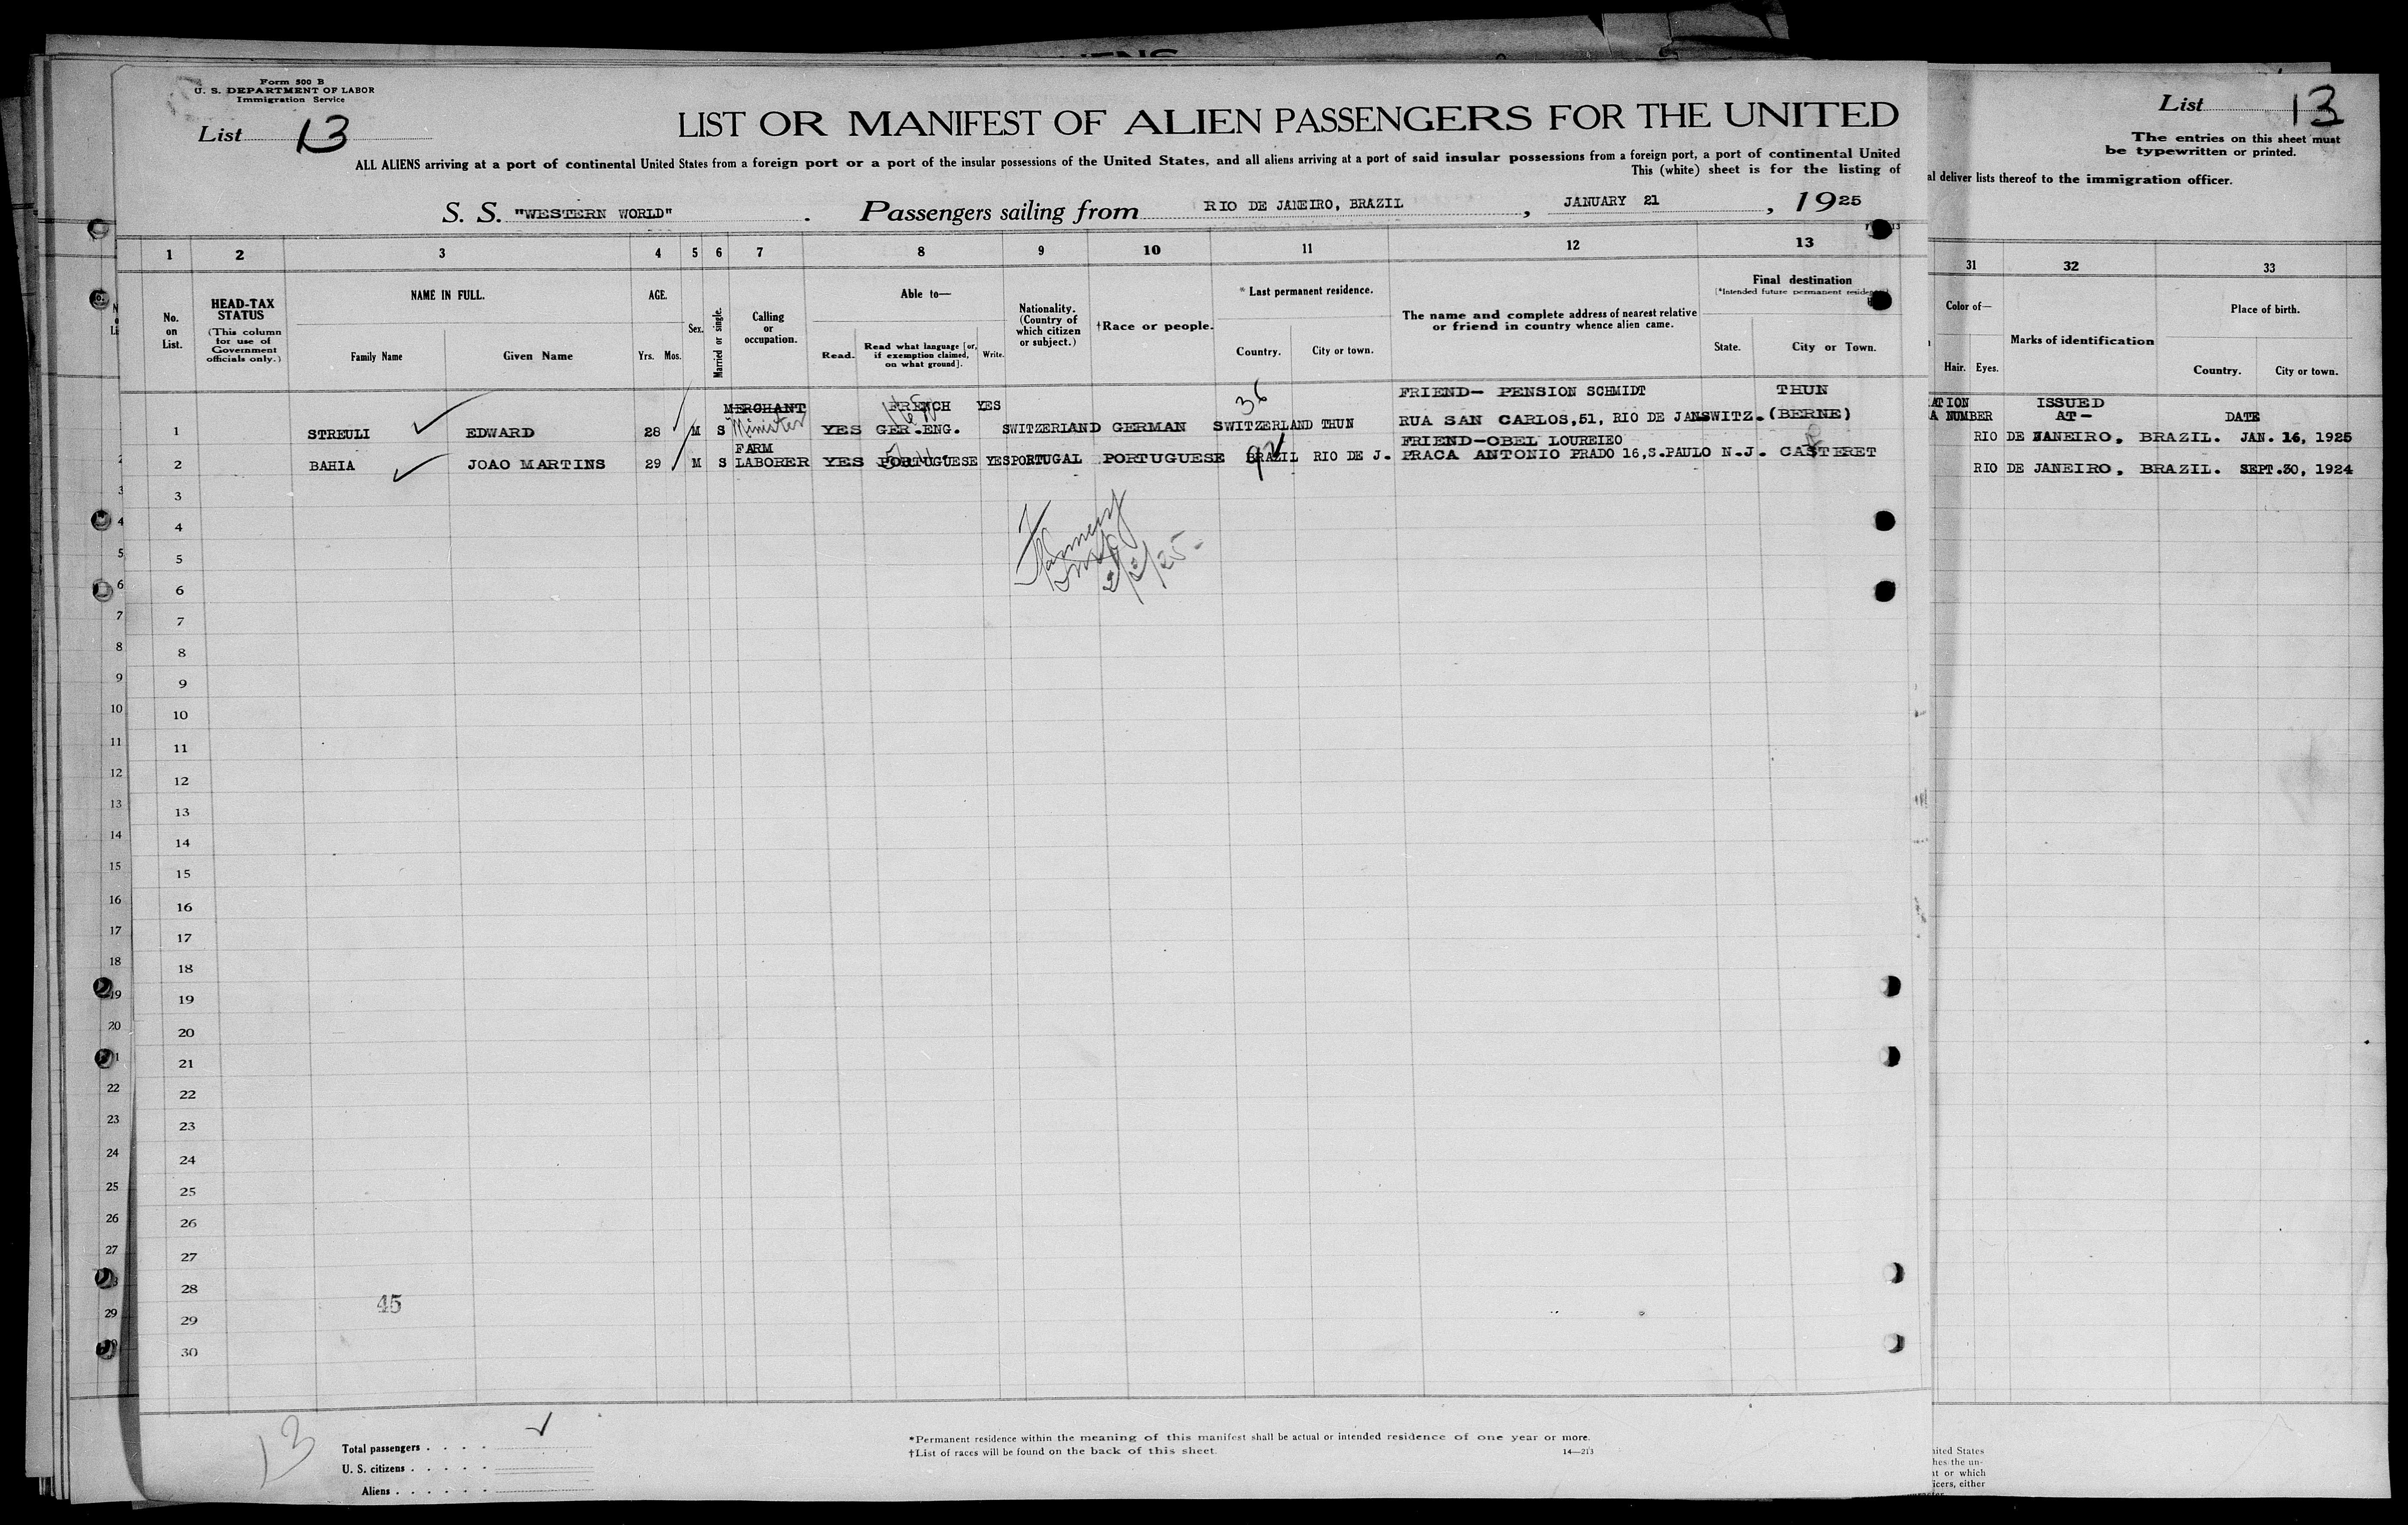 Form 500 B
U. S. DEPARTMENT OF LABOR
Immigration Service
List 13
LIST OR MANIFEST OF ALIEN PASSENGERS FOR THE UNITED
ALL ALIENS arriving at a port of continental United States from a foreign port or a port of the insular possessions of the United States, and all aliens arriving at a port of said insular possessions from a foreign port, a port of continental United
This (white) sheet is for the listing of
S. S. "WESTERN WORLD" . Passengers sailing from RIO DE JANEIRO, BRAZIL , JANUARY 21 , 1925
List 13
The entries on this sheet must
be typewritten or printed.
deliver lists thereof to the immigration officer.
1 2 3 4 5 6 7 8 9 10 11 12 13
31 32 33
No. on List.
HEAD-TAX STATUS
(This column for use of Government officials only.)
NAME IN FULL.
Family Name Given Name
AGE.
Yrs. Mos.
Sex.
Married or single.
Calling or occupation.
Able to—
Read. Read what language [or, if exemption claimed, on what ground]. Write.
Nationality. (Country of which citizen or subject.)
†Race or people.
* Last permanent residence.
Country. City or town.
The name and complete address of nearest relative or friend in country whence alien came.
Final destination
State. City or Town.
Color of—
Hair. Eyes.
Marks of identification
Place of birth.
Country. City or town.
MERCHANT FRENCH YES 36 FRIEND- PENSION SCHMIDT THUN
1 STREULI EDWARD 28 M S Minister YES GER.ENG. SWITZERLAND GERMAN SWITZERLAND THUN RUA SAN CARLOS,51, RIO DE JAN SWITZ. (BERNE)
FARM FRIEND-OBEL LOUREIEO
2 BAHIA JOAO MARTINS 29 M S LABORER YES PORTUGUESE YES PORTUGAL PORTUGUESE BRAZIL RIO DE J. PRACA ANTONIO PRADO 16,S.PAULO N.J. CASTERET
NUMBER ISSUED AT- DATE
RIO DE JANEIRO, BRAZIL. JAN. 16, 1925
RIO DE JANEIRO, BRAZIL. SEPT.30, 1924
2/2/25
3
4
5
6
7
8
9
10
11
12
13
14
15
16
17
18
19
20
21
22
23
24
25
26
27
28
29
30
45
13
Total passengers
U. S. citizens
Aliens
*Permanent residence within the meaning of this manifest shall be actual or intended residence of one year or more.
†List of races will be found on the back of this sheet.
14—213